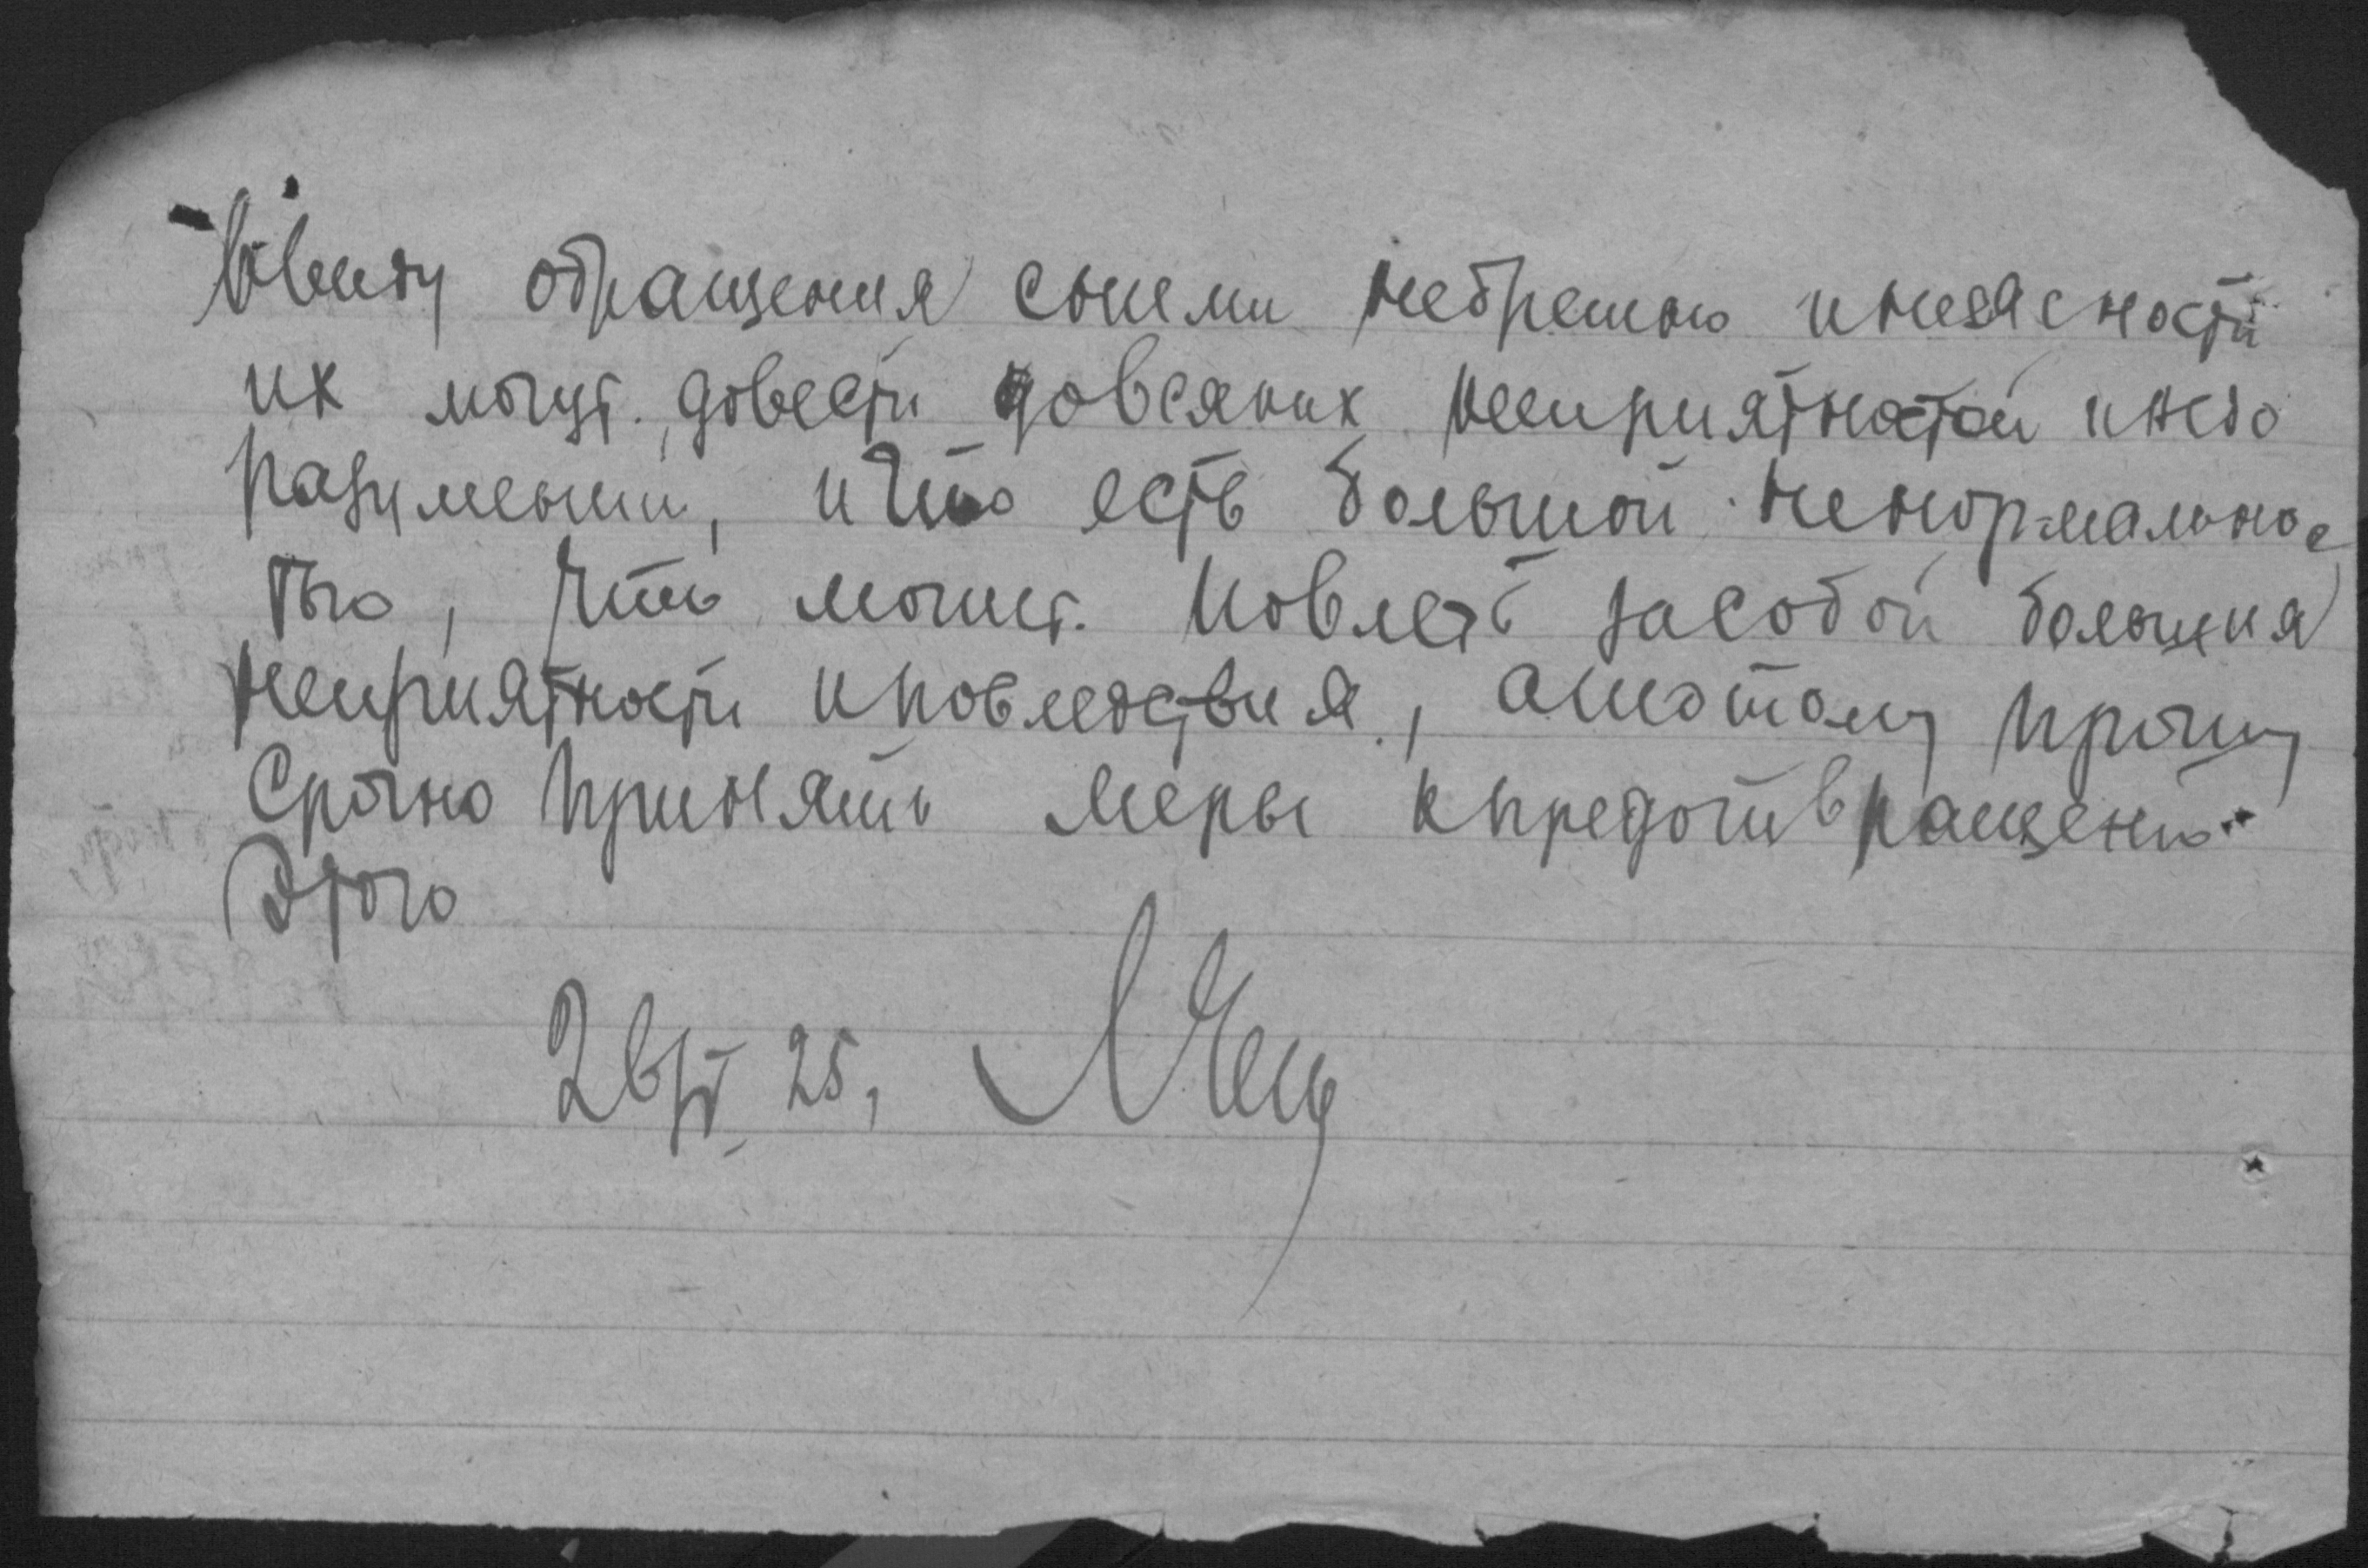 Ввиду обращения сними небрежно инеясности
их могут. довести довсяких неприятностей инедо
разумений, ичто есть большой ненормальнос
тью, что может. повлечь засобой большия
неприятности ипоследствия, апоэтому прошу
Срочно принять меры кпредотвращению
Этого
25,